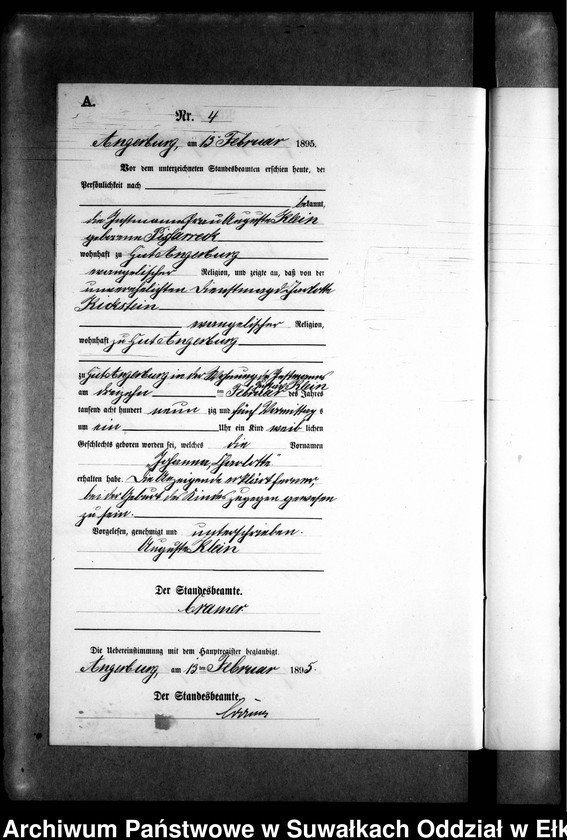 A.
Nr. 4
Angerburg, am 13 Februar 1895.
Vor dem unterzeichneten Standesbeamten erschien heute, der
Persönlichkeit nach
bekannt,
die Instmannsfrau Auguste Klein
geborene
wohnhaft zu Gut Angerburg
evangelischer Religion, und zeigte an, daß von der
unverehelichten Dienstmagd Charlotte
Kickstein
evangelischer Religion,
wohnhaft zu Gut Angerburg
zu Gut Angerburg in der Wohnung des Instmanns
Klein
am dreizehn ten Februar des Jahres
tausend acht hundert neun zig und fünf Vormittag s
um ein Uhr ein Kind weib lichen
Geschlechts geboren worden sei, welches die Vornamen
„Johanna, Charlotte"
erhalten habe. Die Anzeigende erklärt ferner,
bei der Geburt des Kindes zugegen gewesen
zu sein.
Vorgelesen, genehmigt und unterschrieben.
Auguste Klein
Der Standesbeamte.
Cramer
Die Uebereinstimmung mit dem Hauptregister beglaubigt.
Angerburg, am 13ten Februar 1895.
Der Standesbeamte.
Cramer
Archiwum Państwowe w Suwałkach Oddział w Ełk